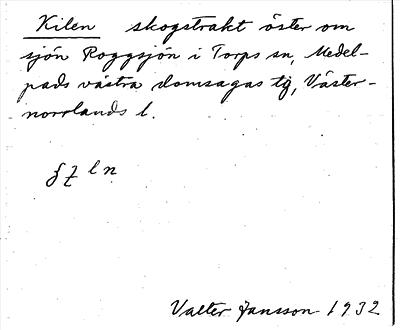 Kilen skogstrakt öster om
sjön Roggsjön i Torps sn, Medel-
pads västra domsagas tg, Väster-
norrlands l.
Valter Jansson 1932